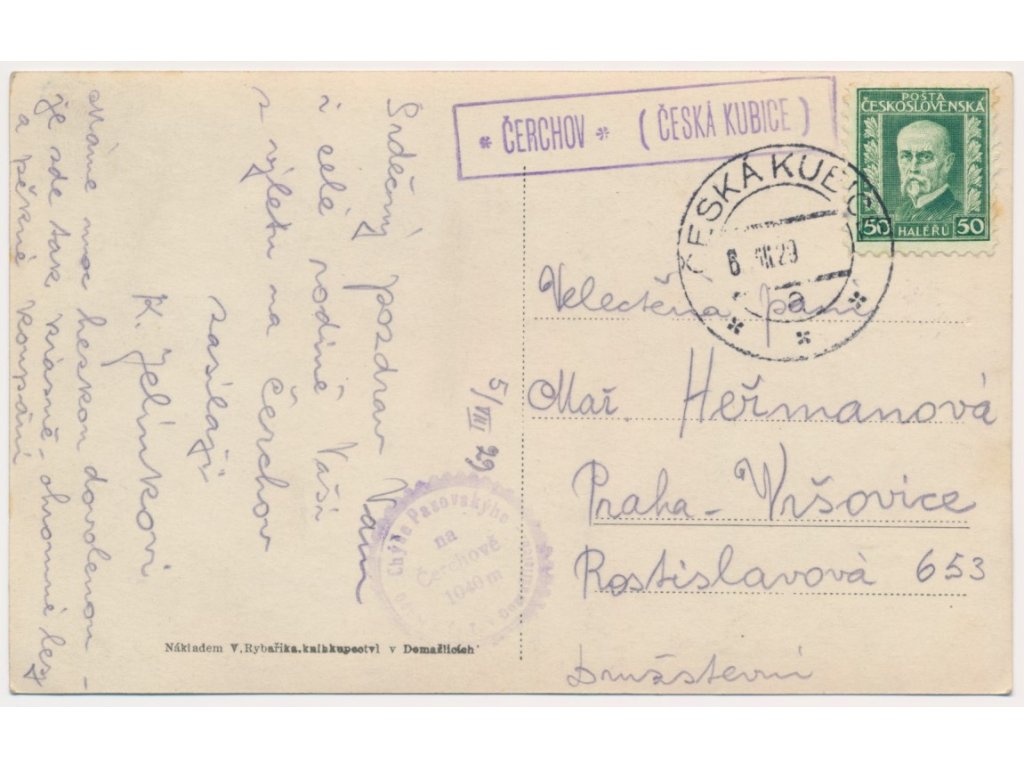 * ČERCHOV * (ČESKÁ KUBICE)
POŠTA
ČESKOSLOVENSKÁ
50 HALÉŘŮ 50
ČESKÁ KUBICE
6. VIII. 29
a
Velectěná paní
Mař Heřmanová
Praha-Vršovice
Rostislavová 653
Družstevní
5/VIII 29
Srdečný pozdrav Vám
i celé rodině Vaší
s výletu na Čerchov
zasílají
K. Jelínkovi
Máme moc hezkou dovolenou -
je zde tak krásně - ohromné lesy
a pěkné koupání
Chýše Pasovského
na
Čerchově
1040 m
Nákladem V. Rybařika, knihkupectví v Domažlicích